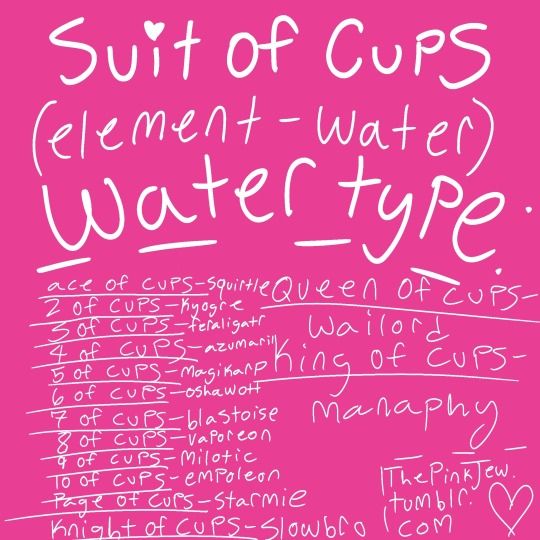 Suit of Cups
(element - water)
Water type.
ace of cups-Squirtle
2 of cups-Kyogre
3 of cups-feraligatr
4 of cups-azumarill
5 of cups-Magikarp
6 of cups-oshawott
7 of cups-blastoise
8 of cups-vaporeon
9 of cups-Milotic
10 of cups-empoleon
Page of cups-Starmie
Knight of cups-Slowbro
Queen of cups-
Wailord
King of cups-
Manaphy
ThePinkJew.
tumblr.
com